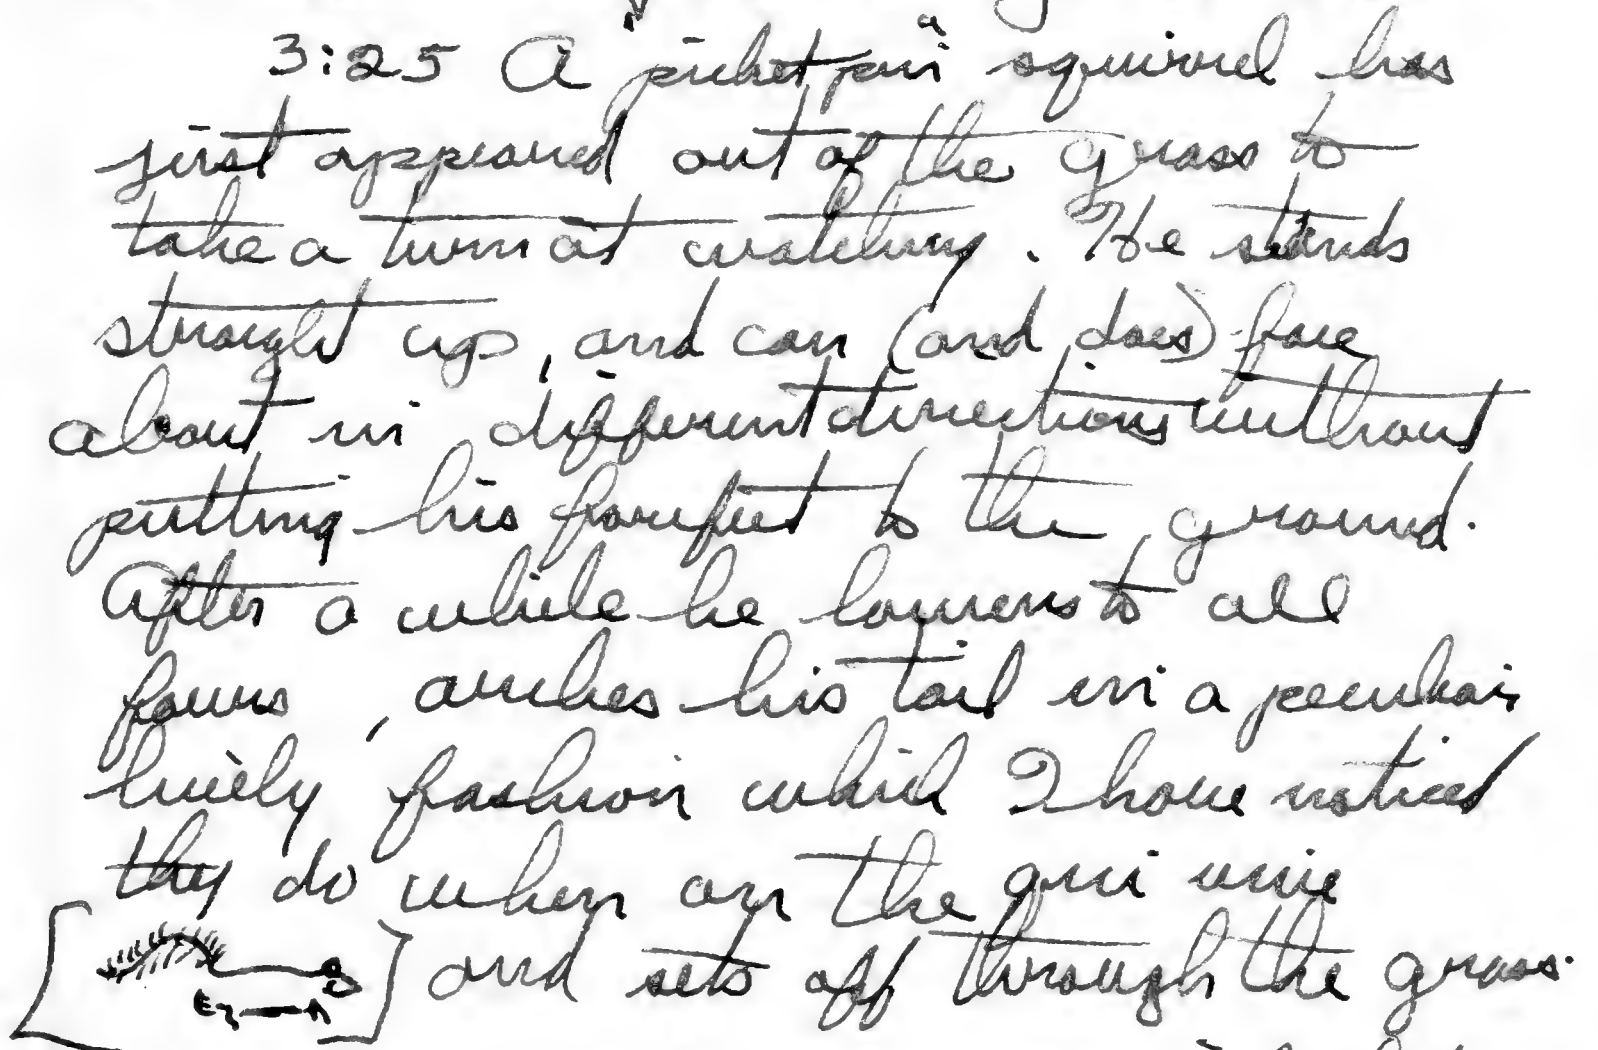 3:25 A "picket pin" squirrel has
just appeared out of the grass to
take a turn at watching. He stands
straight up, and can (and does) face
about in different directions without
putting his forefeet to the ground.
After a while he lowers to all
fours, arches his tail in a peculiar
lively fashion which I have noticed
they do when on the qui vive
and sets off through the grass.